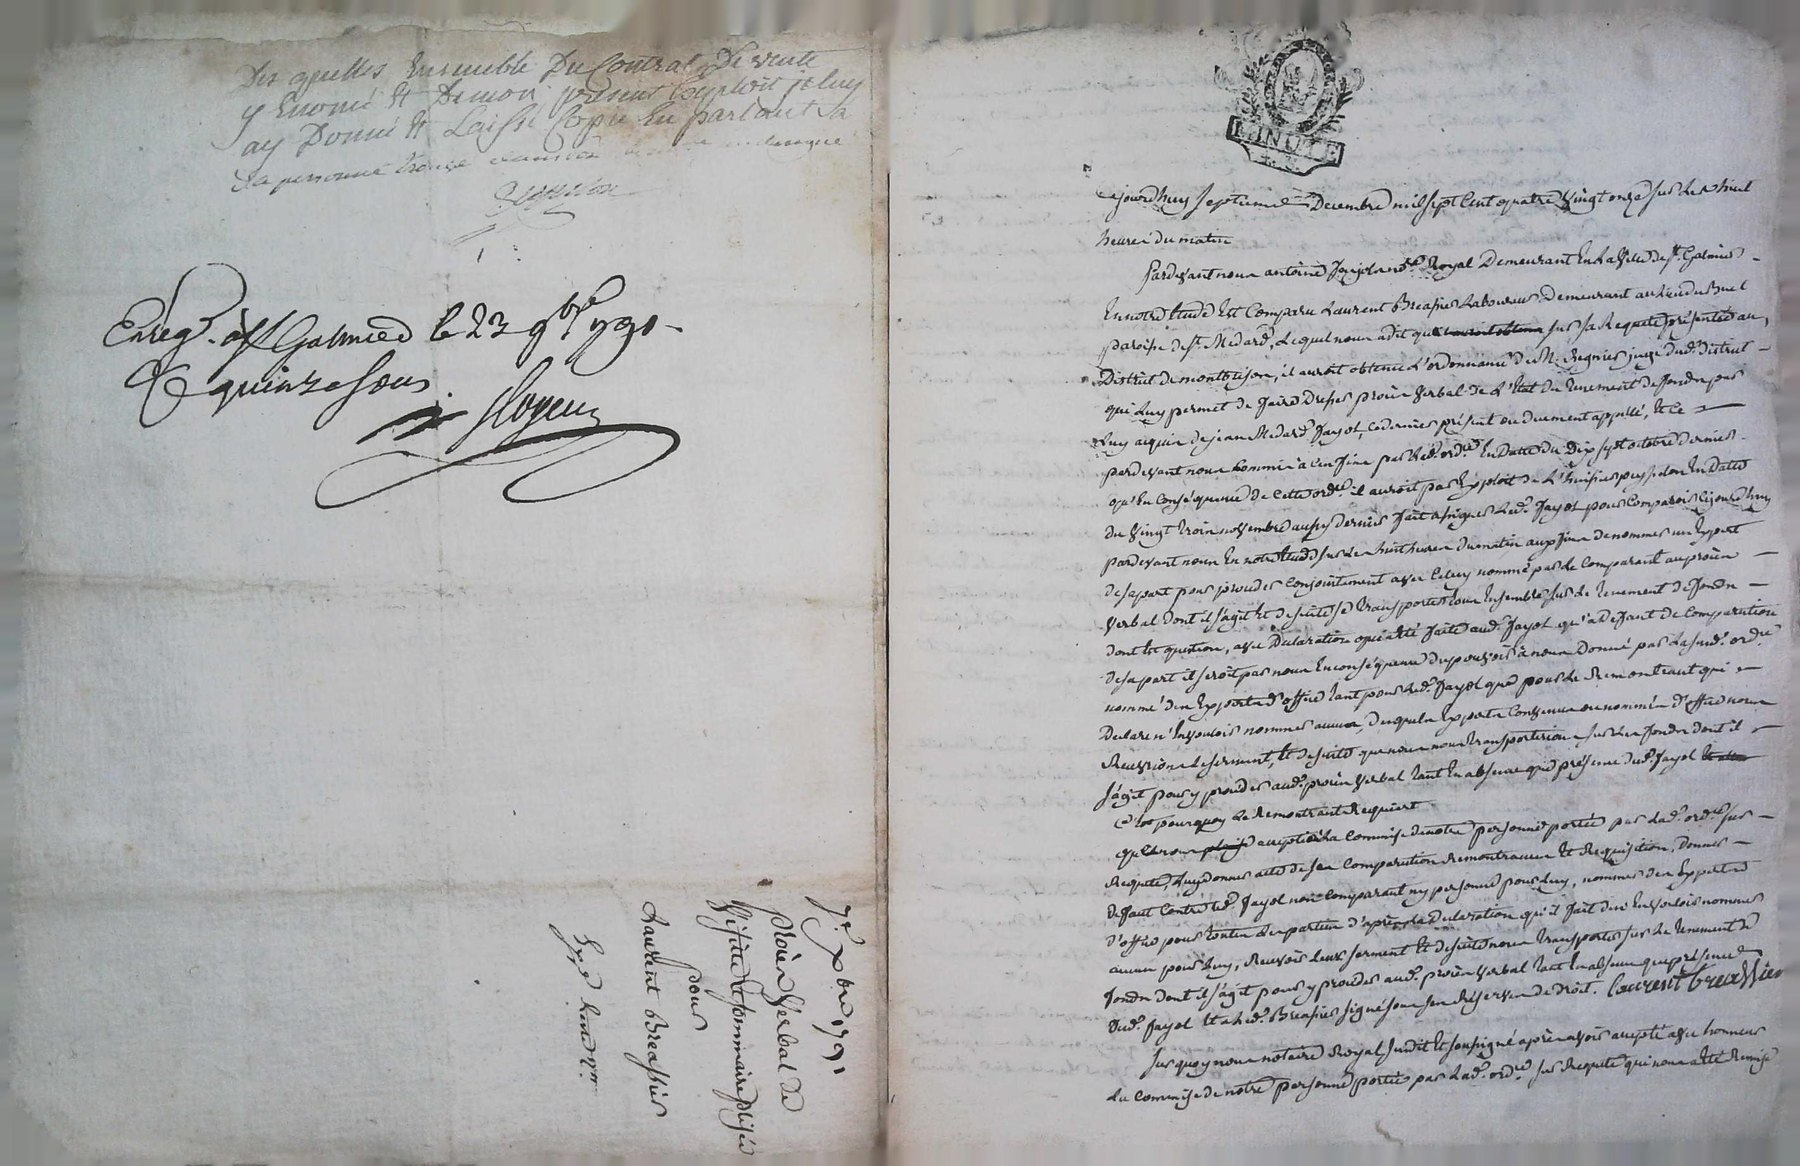 Des quelles Ensemble Du Contrat De vente
y Enoncé Et De mon present Exploit je luy
ay Donné Et Laissé Copie En parlant a
Sa personne trouvé
Enreg. à St Galmier le 23 9bre 1791
R quinze sous
7e xbre 1791
procès Verbal de
Visitte et sommaire prisée
pour
Laurent Breassier
LINUTE
Cejourdhuy septieme Decembre mil sept Cent quatre Vingt onze sur Les huit
heures du matin
Pardevant nous antoine notre Royal Demeurant En La Ville de St Galmier
En notre Etude Est Comparu Laurent Breassier Laboureur Demeurant au Lieu du
paroisse de St Medard, Lequel nous a dit que sur sa Requete présentée au
District de montbrison, il auroit obtenu L'ordonnance de M. Regnier juge dud. District
qui Luy permet de faire Dresser procès Verbal de L'Etat du tenement de fonds par
Luy acquis de jean Medard Jayol, Ce dernier présent ou duement appellé, Et Ce
pardevant nous Commis à Cen fins par Lad. ordce En Datte du Dix sept octobre dernier
qu'En Conséquence de Cette ordce il auroit par Exploit de L'huissier En Datte
du Vingt trois novembre aussy dernier fait assigner Led. Jayol pour Comparoir Cejourdhuy
pardevant nous En notre Etude sur Les huit heures du matin aux fins de nommer un Expert
de sa part pour proceder Conjointement avec Celuy nommé par Le Comparant au procès
Verbal dont il s'agit Et de suitte se transporter tous Ensemble sur Le tenement de fonds
dont Est question, avec Déclaration qui a été faite aud. Jayol qu'à Deffaut de Comparution
de sa part il seroit par nous En conséquence du pouvoir à nous donné par La sud. ordce
nommé des Experts d'office tant pour Led. Jayol que pour Le Remontrant qui
Declare n'En vouloir nommer aucun, desquels Experts Convenus ou nommés d'office nous
Recevrions Le serment, Et de suitte que nous nous transporterions sur Les fonds dont il
s'agit pour y proceder aud. procès Verbal tant En absence que présence dud. Jayol
C'est pourquoy Le Remontrant Requiert
qu'Il nous acceptions La Commise de notre personne portée par Lad. ordce sur
Requete, Luy donner acte de sa Comparution Remontrances Et Requisition, Donner
Deffaut Contre Led. Jayol non Comparant ny personne pour Luy, nommer des Experts
d'office pour toutes Les parties d'après La Declaration qu'il fait de n'En vouloir nommer
aucun pour Luy, Recevoir Leur serment Et de suitte nous transporter sur Le tenement de
fonds dont il s'agit pour y proceder aud. procès Verbal tant En absence que présence
dud. Jayol Et a Led. Breassier signé sous ses Réserves de Droit. Laurent breassier
Sur quoy nous notaire Royal susdit Et soussigné après avoir accepté avec honneur
La Commise de notre personne portée par Lad. ordce sur Requete qui nous a été Remise